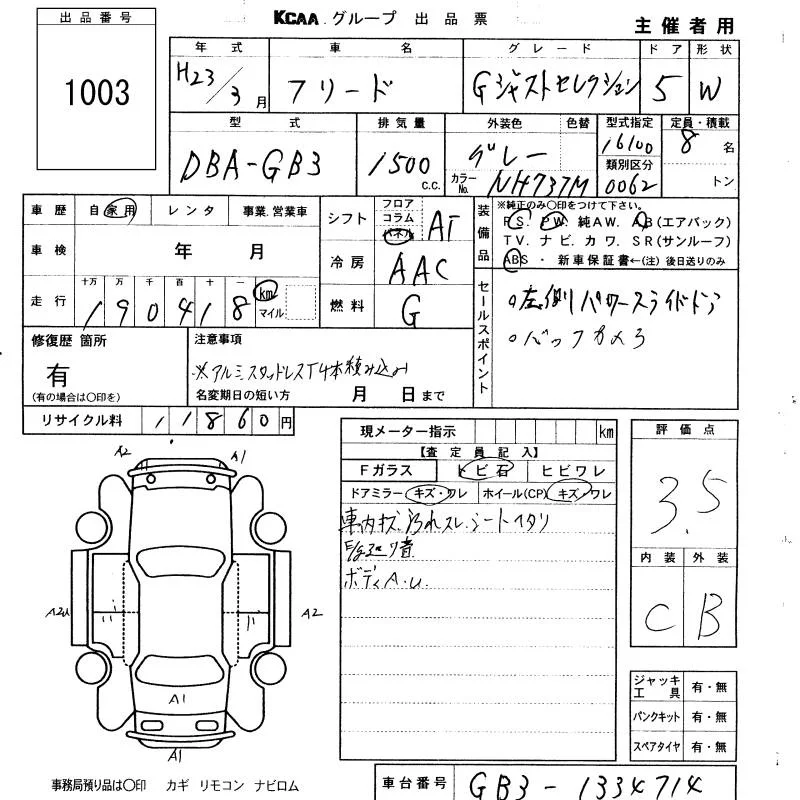 出品番号
1003
KCAA グループ 出品票
主催者用
年式 車名 グレード ドア 形状
H23/3月 フリード Gジャストセレクション 5 W
型式 排気量 外装色 色替 型式指定 定員・積載
DBA-GB3 1500 C.C. グレー 16100 8名
カラーNo. NH737M 類別区分 0062 トン
車歴 自家用 レンタ 事業.営業車
車検 年 月
走行 十万 万 千 百 十 一
190418 km マイル
シフト フロア コラム パネル AT
冷房 AAC
燃料 G
装備品 ※純正のみ〇印をつけて下さい。
PS. PW. 純AW. AB(エアバック)
TV. ナビ. カワ. SR(サンルーフ)
ABS ・ 新車保証書←(注) 後日送りのみ
セールスポイント
○左側パワースライドドア
○バックカメラ
修復歴 箇所
有
(有の場合は〇印を)
注意事項
※アルミスタッドレスT4本積み込み
名変期日の短い方 月 日まで
リサイクル料 11860円
現メーター指示 km
【査定員記入】
Fガラス トビ石 ヒビワレ
ドアミラー キズ・ワレ ホイール(CP) キズ・ワレ
車内キズ汚れスレ.シートヘタリ
ボディA.U.
評価点
3.5
内装 外装
C B
ジャッキ工具 有・無
パンクキット 有・無
スペアタイヤ 有・無
A2 A1
A2U A2
A1
A1
事務局預り品は〇印 カギ リモコン ナビロム
車台番号 GB3-1334714